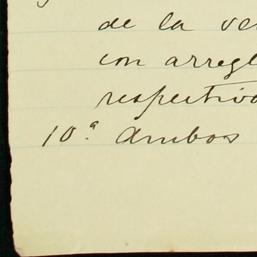 de la ve
con arregl
respectivo
10.ª Ambos